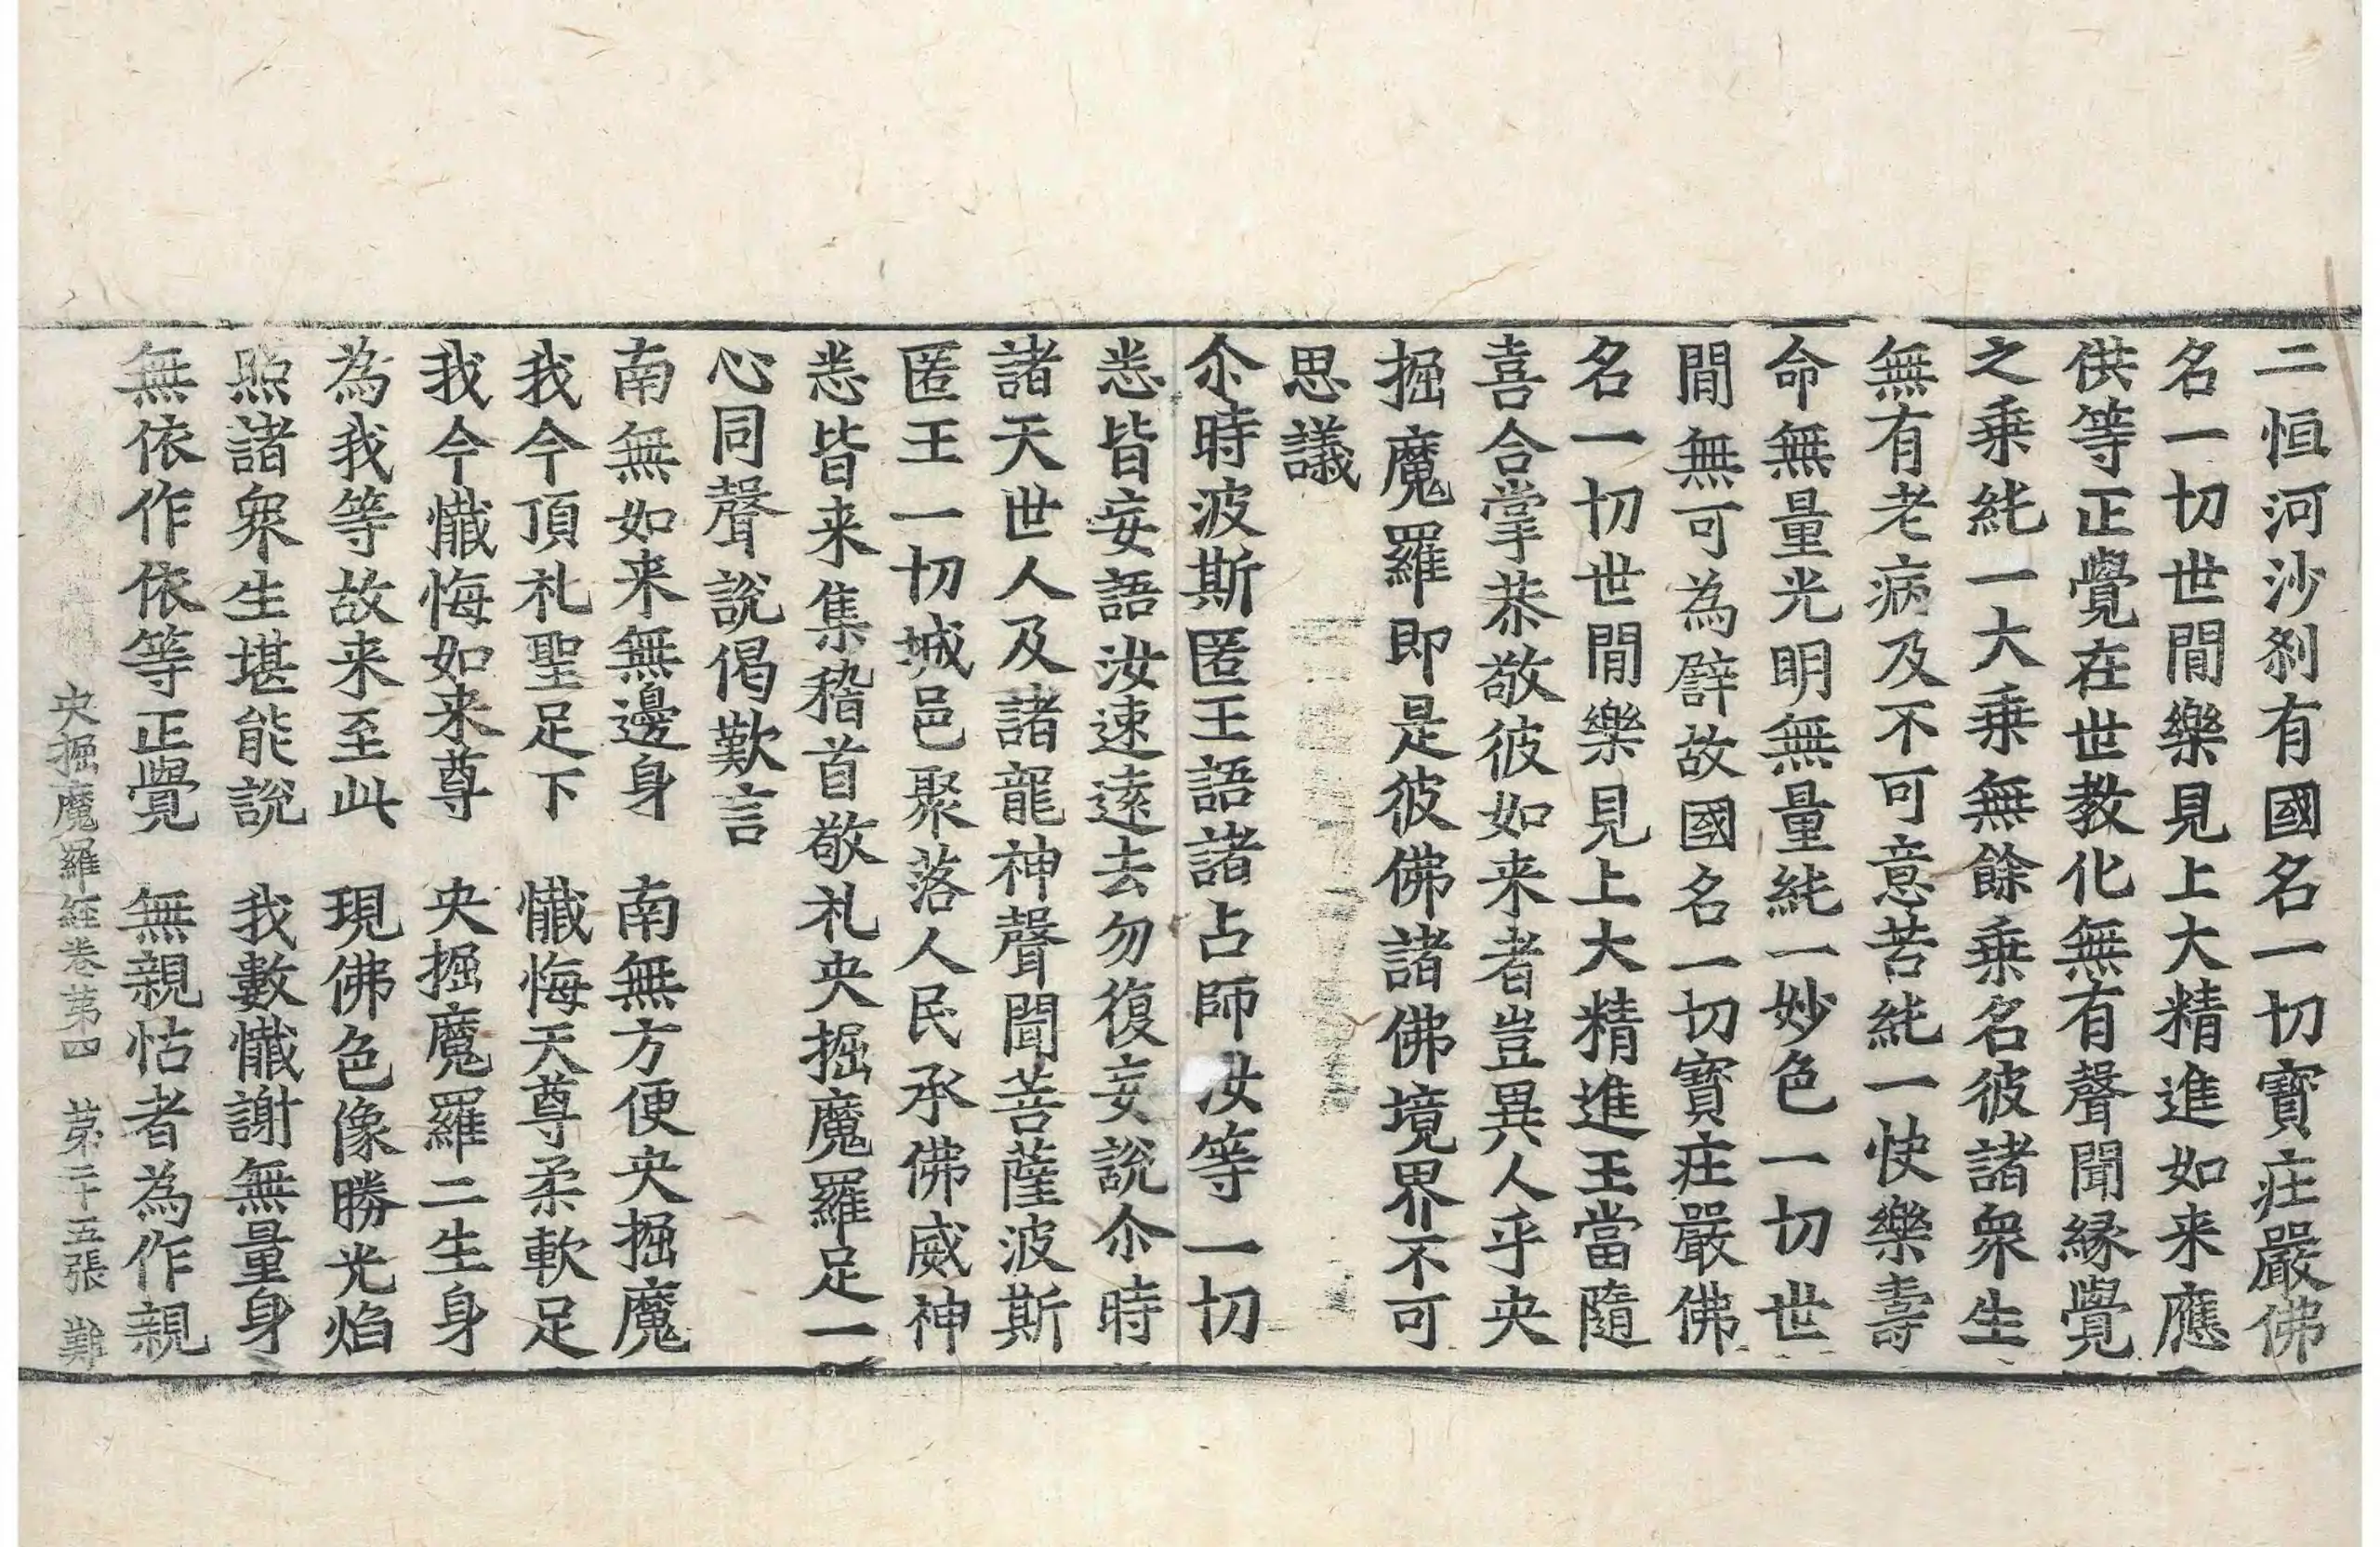 二恒河沙刹有國名一切寶疘嚴佛
名一切世間樂見上大精進如来應
供等正覺在世教化無有聲聞縁覺
之乗純一大乗無餘乗名彼諸衆生
無有老病及不可意苦純一快樂壽
命無量光明無量純一妙色一切世
間無可為譬故國名一切寶疘嚴佛
名一切世間樂見上大精進王當隨
喜合掌恭敬彼如来者豈異人乎央
掘魔羅即是彼佛諸佛境界不可
思議
尒時波斯匿王語諸占師汝等一切
悉皆妄語汝速遠去勿復妄說尒時
諸天世人及諸龍神聲聞菩薩波斯
匿王一切城邑聚落人民承佛威神
悉皆来集稽首敬礼央掘魔羅足一
心同聲說偈歎言
南無如来無邊身　南無方便央掘魔
我今頂礼聖足下　懺悔天尊柔軟足
我今懺悔如来尊　央掘魔羅二生身
為我等故来至此　現佛色像勝光焰
照諸衆生堪能說　我數懺謝無量身
無依作依等正覺　無親怙者為作親
央掘魔羅經卷第四　第二十五張　難